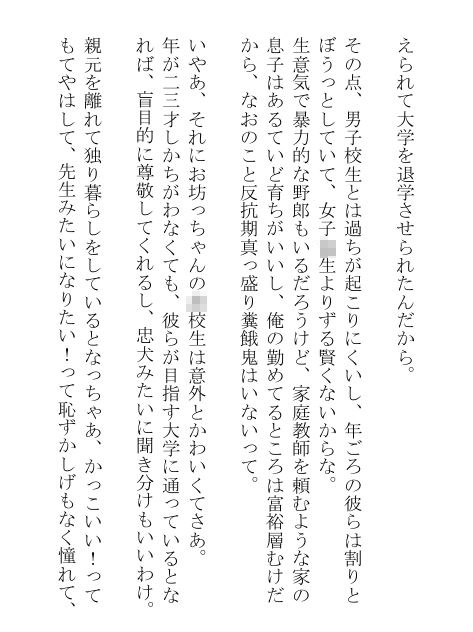 えられて大学を退学させられたんだから。
その点、男子校生とは過ちが起こりにくいし、年ごろの彼らは割りと
ぼうっとしていて、女子生よりずる賢くないからな。
生意気で暴力的な野郎もいるだろうけど、家庭教師を頼むような家の
息子はあるていど育ちがいいし、俺の勤めてるところは富裕層むけだ
から、なおのこと反抗期真っ盛り糞餓鬼はいないって。
いやあ、それにお坊っちゃんの校生は意外とかわいくてさあ。
年が二三才しかちがわなくても、彼らが目指す大学に通っているとな
れば、盲目的に尊敬してくれるし、忠犬みたいに聞き分けもいいわけ。
親元を離れて独り暮らしをしているとなっちゃあ、かっこいい！って
もてやはして、先生みたいになりたい！って恥ずかしげもなく憧れて、